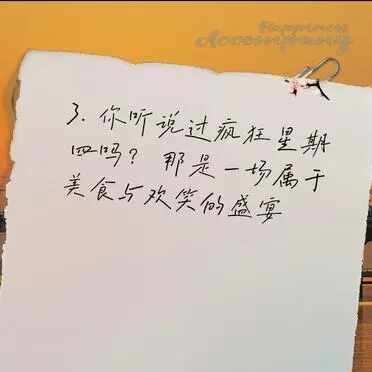 Happiness
Accompany
3. 你听说过疯狂星期
四吗？ 那是一场属于
美食与欢笑的盛宴